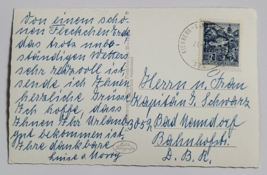 Von einem schö-
nen Fleckchen Erde
das trotz unbe-
ständigen Wetters
sehr reizvoll ist,
sende ich Ihnen
herzliche Grüsse
Ich hoffe, dass
Ihnen Ihr Urlaub
gut bekommen ist,
Ihre dankbare
Luise
Herrn u. Frau
Kapitän I. Schwarz
3052 Bad Nenndorf
Bahnhofstr.
D.B.R.